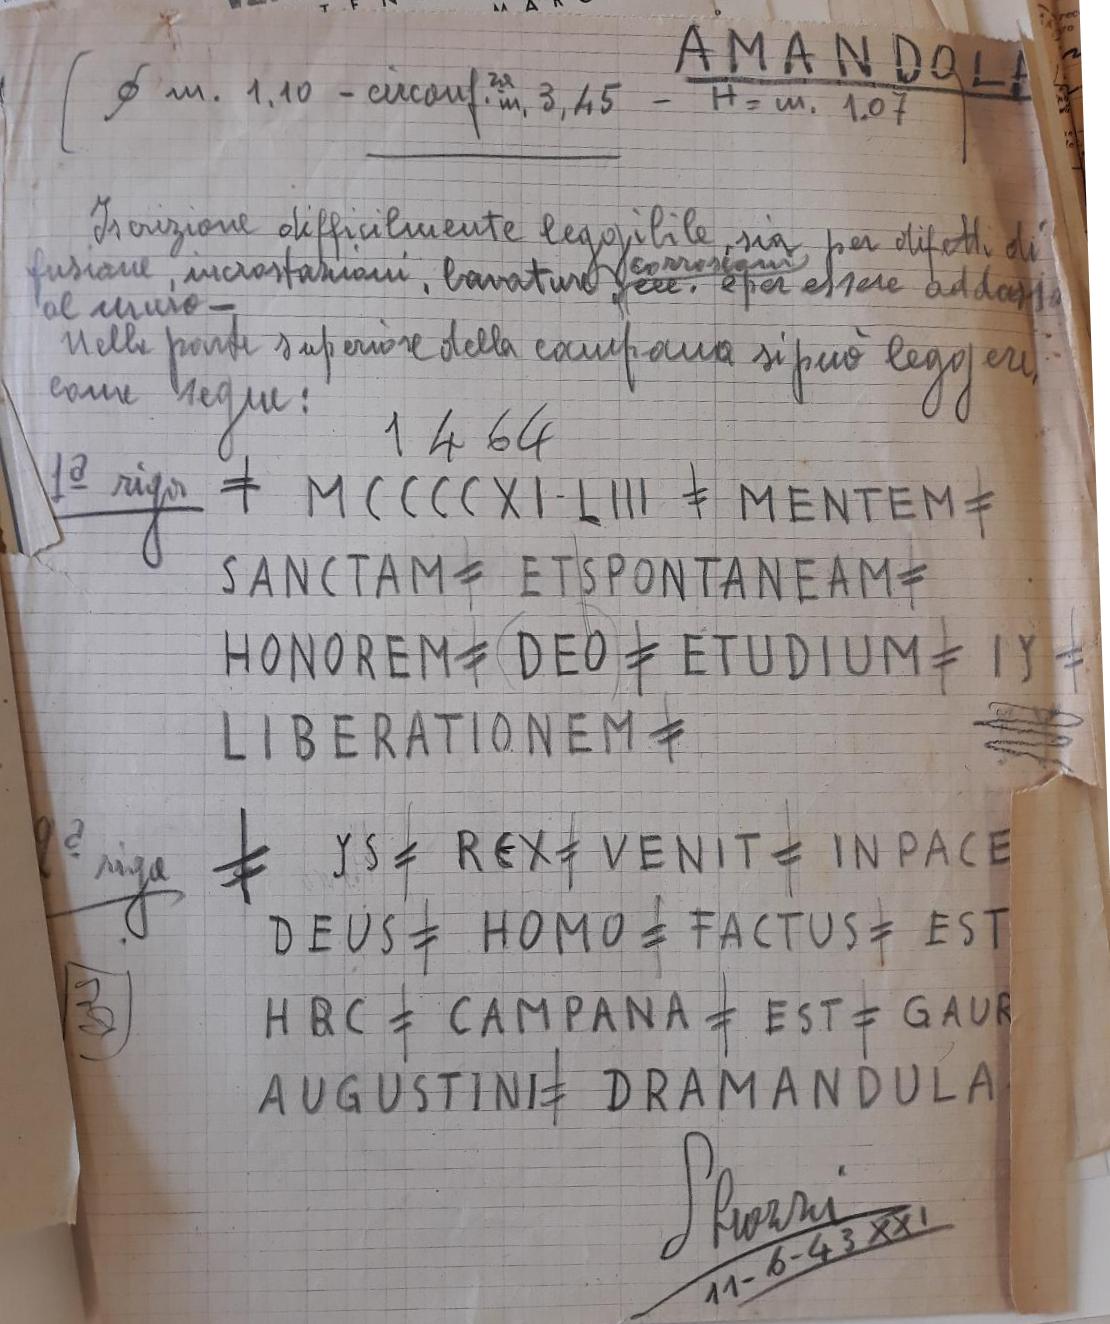 AMANDOLA
ϕ m. 1,10 - circonf.za m. 3,45 - H = m. 1.07
Iscrizione difficilmente leggibile, sia per difetti di
fusione, incrostazioni, lavature, corrosioni, e per essere addossa
al muro -
Nella parte superiore della campana si può leggere,
come segue:
1464
1ª riga ≠ MCCCCXI-LIII ≠ MENTEM ≠
SANCTAM ≠ ETSPONTANEAM ≠
HONOREM ≠ DEO ≠ ETUDIUM ≠ IY ≠
LIBERATIONEM ≠
2ª riga ≠ YS ≠ REX ≠ VENIT ≠ IN PACE
DEUS ≠ HOMO ≠ FACTUS ≠ EST
HBC ≠ CAMPANA ≠ EST ≠ GAUR
AUGUSTINI ≠ DRAMANDULA
11-6-43 XXI